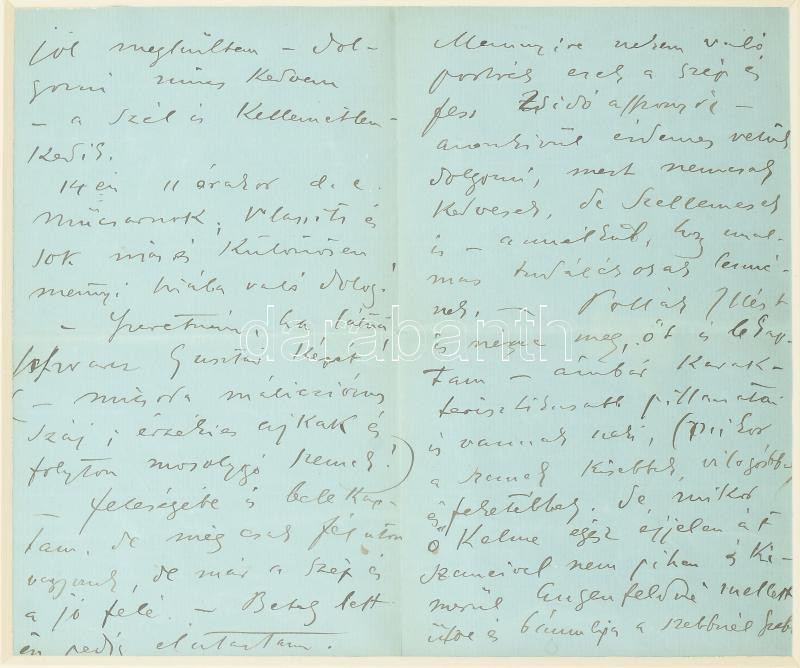 jól meghűltem – dol-
gozni nincs kedvem
– a szél is kellemetlen-
kedik.
14én 11 órakor d. e.
műcsarnok; Vlassits és
sok más és különösen
mennyi hiába való dolog!
– Szeretném, ha látná
Schwarz Gusztáv képét!
(– micsoda máliciózus
száj; érzékies ajkak és
folyton mosolygó szemek!)
feleségébe is belekap-
tam. de még csak félúton
vagyunk, de már a szép és
a jó felé. – Beteg lett
én pedig elutaztam.
Mennyire nekem való
portrék ezek, a szép és
fess Zsidó asszonyok –
azonkívül érdemes velük
dolgozni, mert nemcsak
kedvesek, de szellemesek
is – a nélkül, hogy unal-
mas tudálékosak lenné-
nek. – Pollák Illést
is nézze meg, őt is elkap-
tam – ámbár karak-
terisztikusabb pillanatai
is vannak neki, (mikor
a szemek kisebbek, világosabb,
feketébbek. de mikor
ő Kelme egész éjjelen át
szemeivel nem pihen és ki-
merül Engenfeldné mellett
ülve és bámulja a szebbnél szebb
darabanth